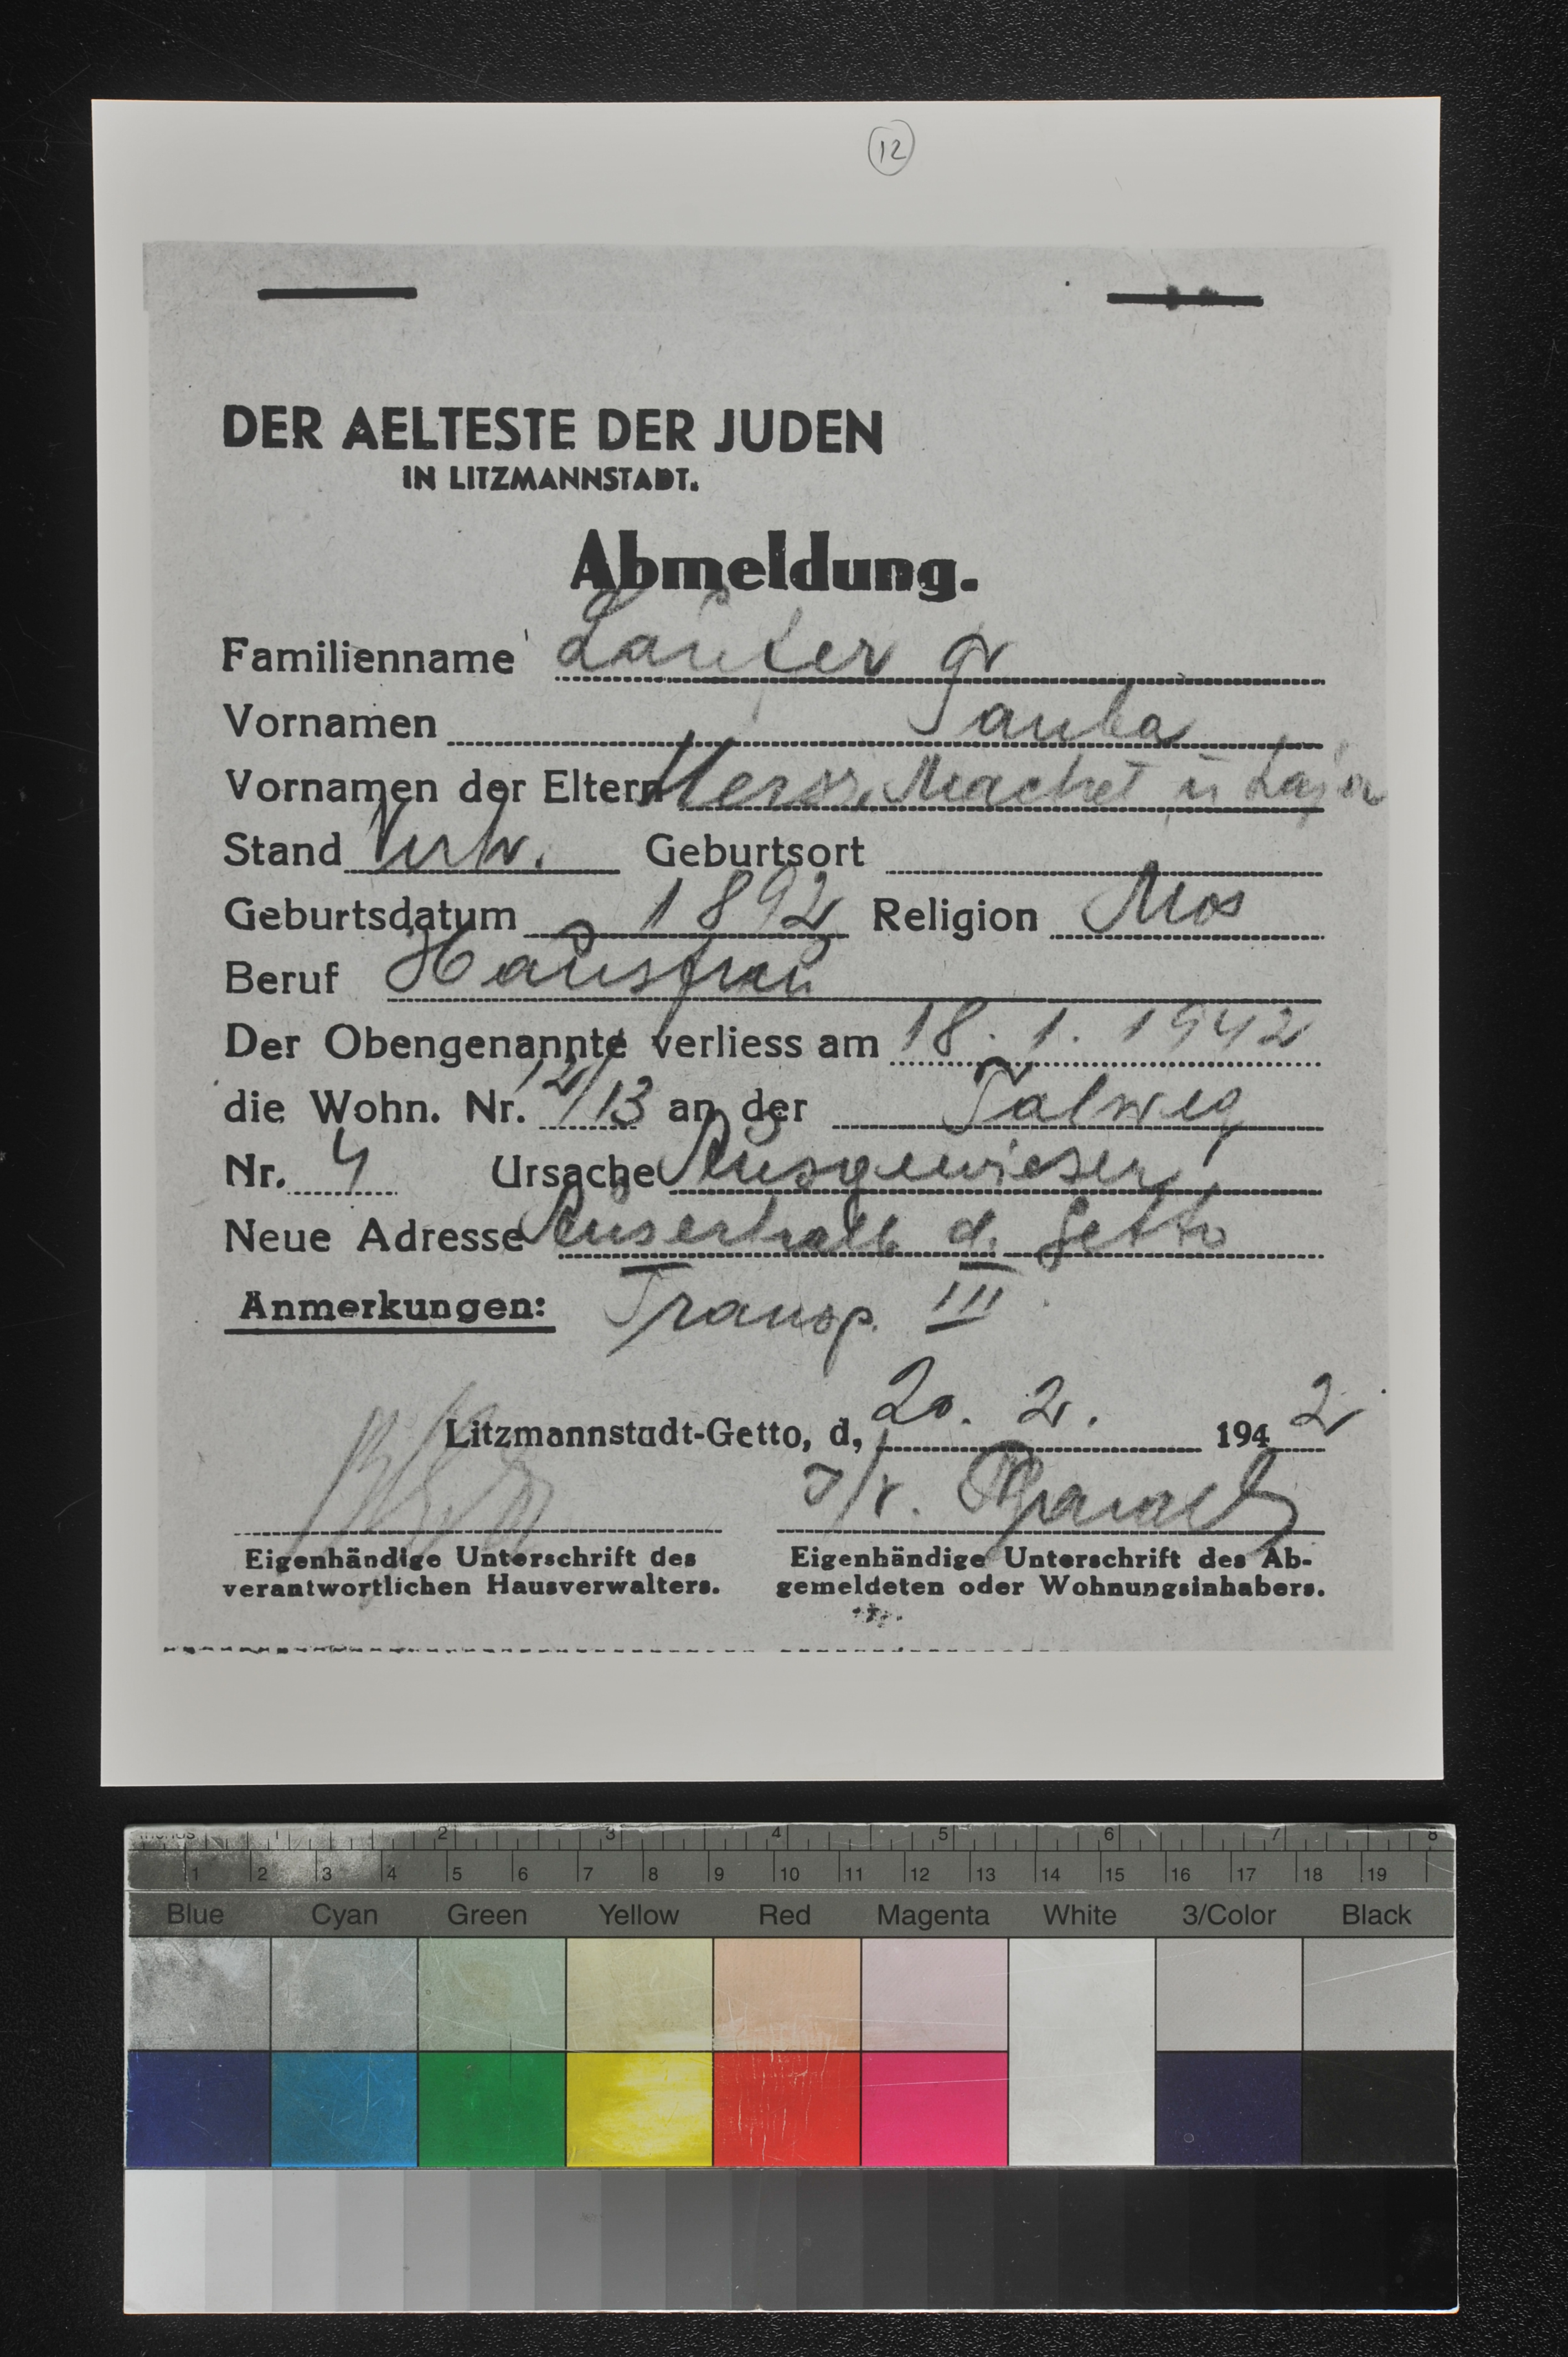 12
DER AELTESTE DER JUDEN
IN LITZMANNSTADT.
Abmeldung.
Familienname Laufer
Vornamen Tauba
Vornamen der Eltern Hersz, u
Stand Verh. Geburtsort
Geburtsdatum 1892 Religion Mos
Beruf Hausfrau
Der Obengenannte verliess am 18. 1. 1942
die Wohn. Nr. 12/13 an der Talweg
Nr. 4 Ursache Ausgewiesen
Neue Adresse Auserhalb d. Getto
Anmerkungen: Transp. III
Litzmannstadt-Getto, d, 20. 2. 1942
Eigenhändige Unterschrift des
verantwortlichen Hausverwalters.
Eigenhändige Unterschrift des Ab-
gemeldeten oder Wohnungsinhabers.
1 2 3 4 5 6 7 8
1 2 3 4 5 6 7 8 9 10 11 12 13 14 15 16 17 18 19
Blue Cyan Green Yellow Red Magenta White 3/Color Black